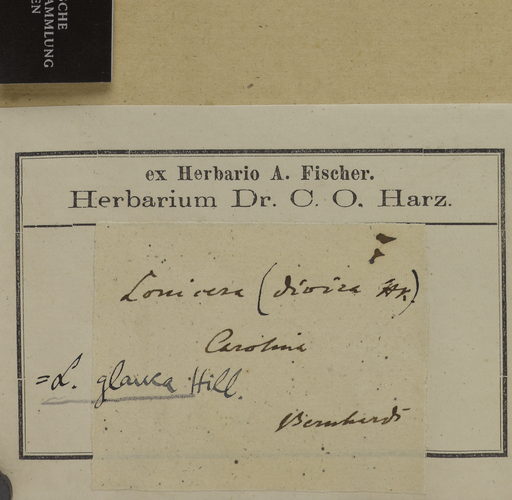 SCHE
SAMMLUNG
EN
ex Herbario A. Fischer.
Herbarium Dr. C. O. Harz.
Lonicera (divisa
Carolina
=L. glauca Hill.
Bernhardi